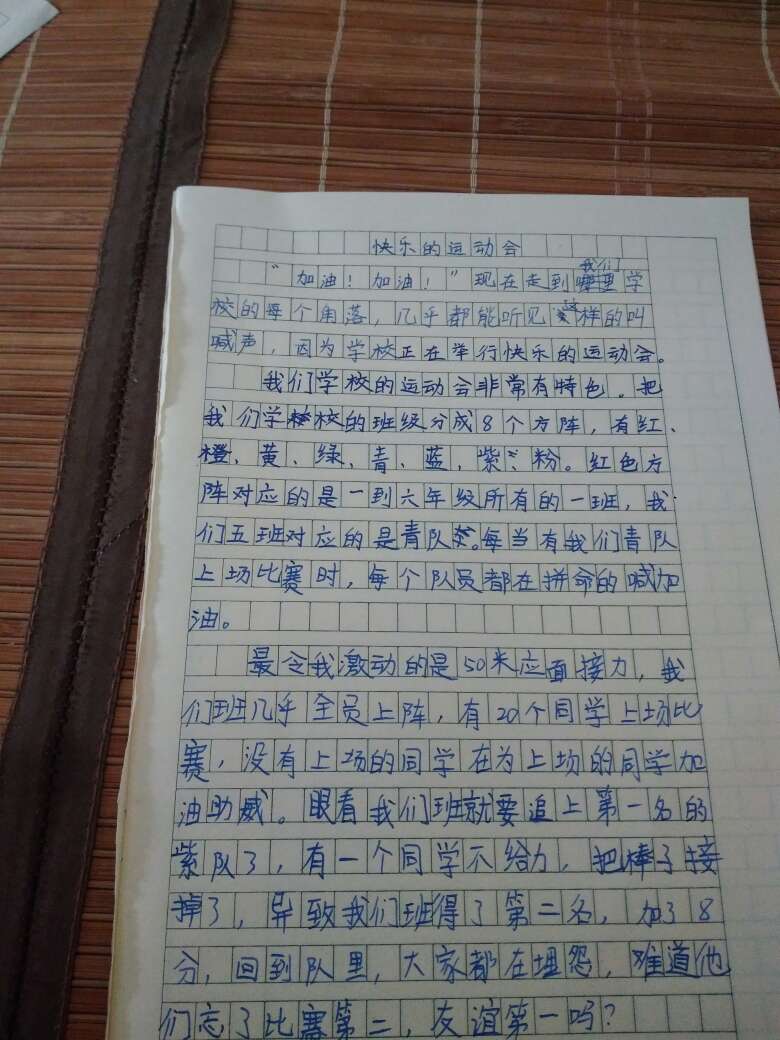 快乐的运动会
“加油！加油！”现在走到我们学
校的每个角落，几乎都能听见这样的叫
喊声，因为学校正在举行快乐的运动会。
我们学校的运动会非常有特色。把
我们学校的班级分成8个方阵，有红、
橙、黄、绿、青、蓝、紫、粉。红色方
阵对应的是一到六年级所有的一班，我
们五班对应的是青队。每当有我们青队
上场比赛时，每个队员都在拼命的喊加
油。
最令我激动的是50米应面接力，我
们班几乎全员上阵，有20个同学上场比
赛，没有上场的同学在为上场的同学加
油助威。眼看我们班就要追上第一名的
紫队了，有一个同学不给力，把棒子接
掉了，导致我们班得了第二名，加了8
分，回到队里，大家都在埋怨，难道他
们忘了比赛第二，友谊第一吗？